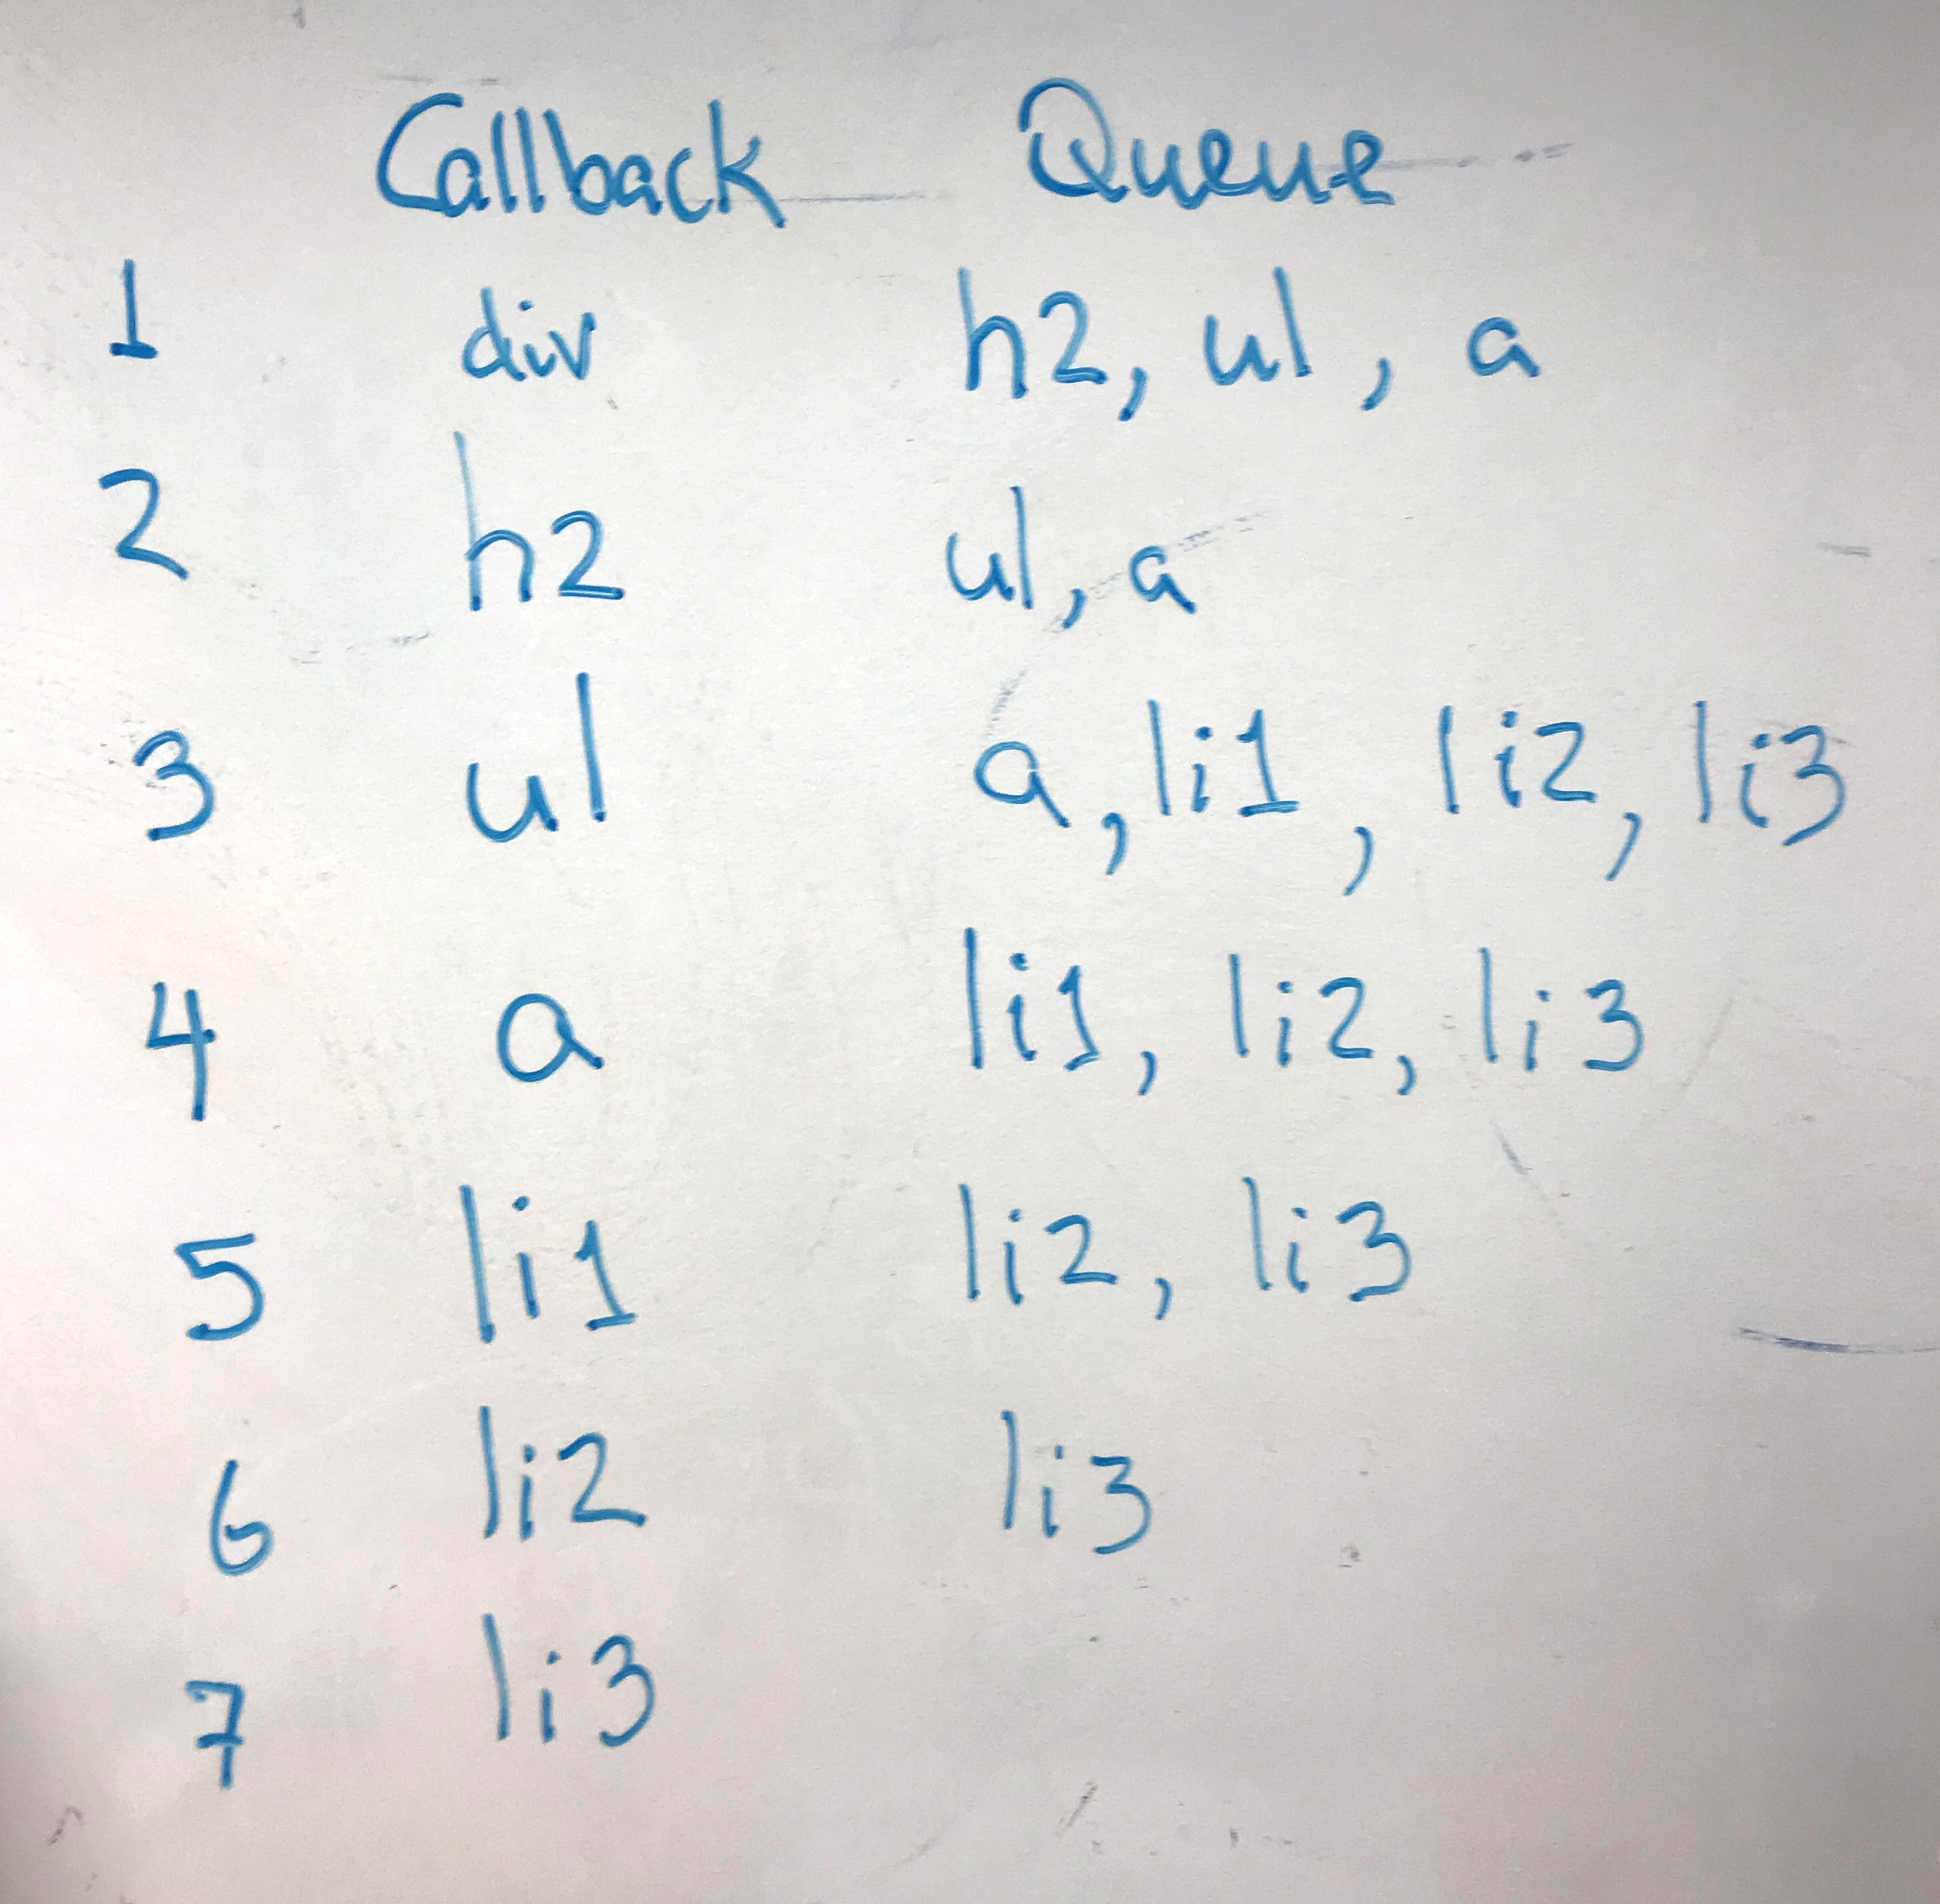 Callback Queue
1 div h2, ul, a
2 h2 ul, a
3 ul a, li1, li2, li3
4 a li1, li2, li3
5 li1 li2, li3
6 li2 li3
7 li3